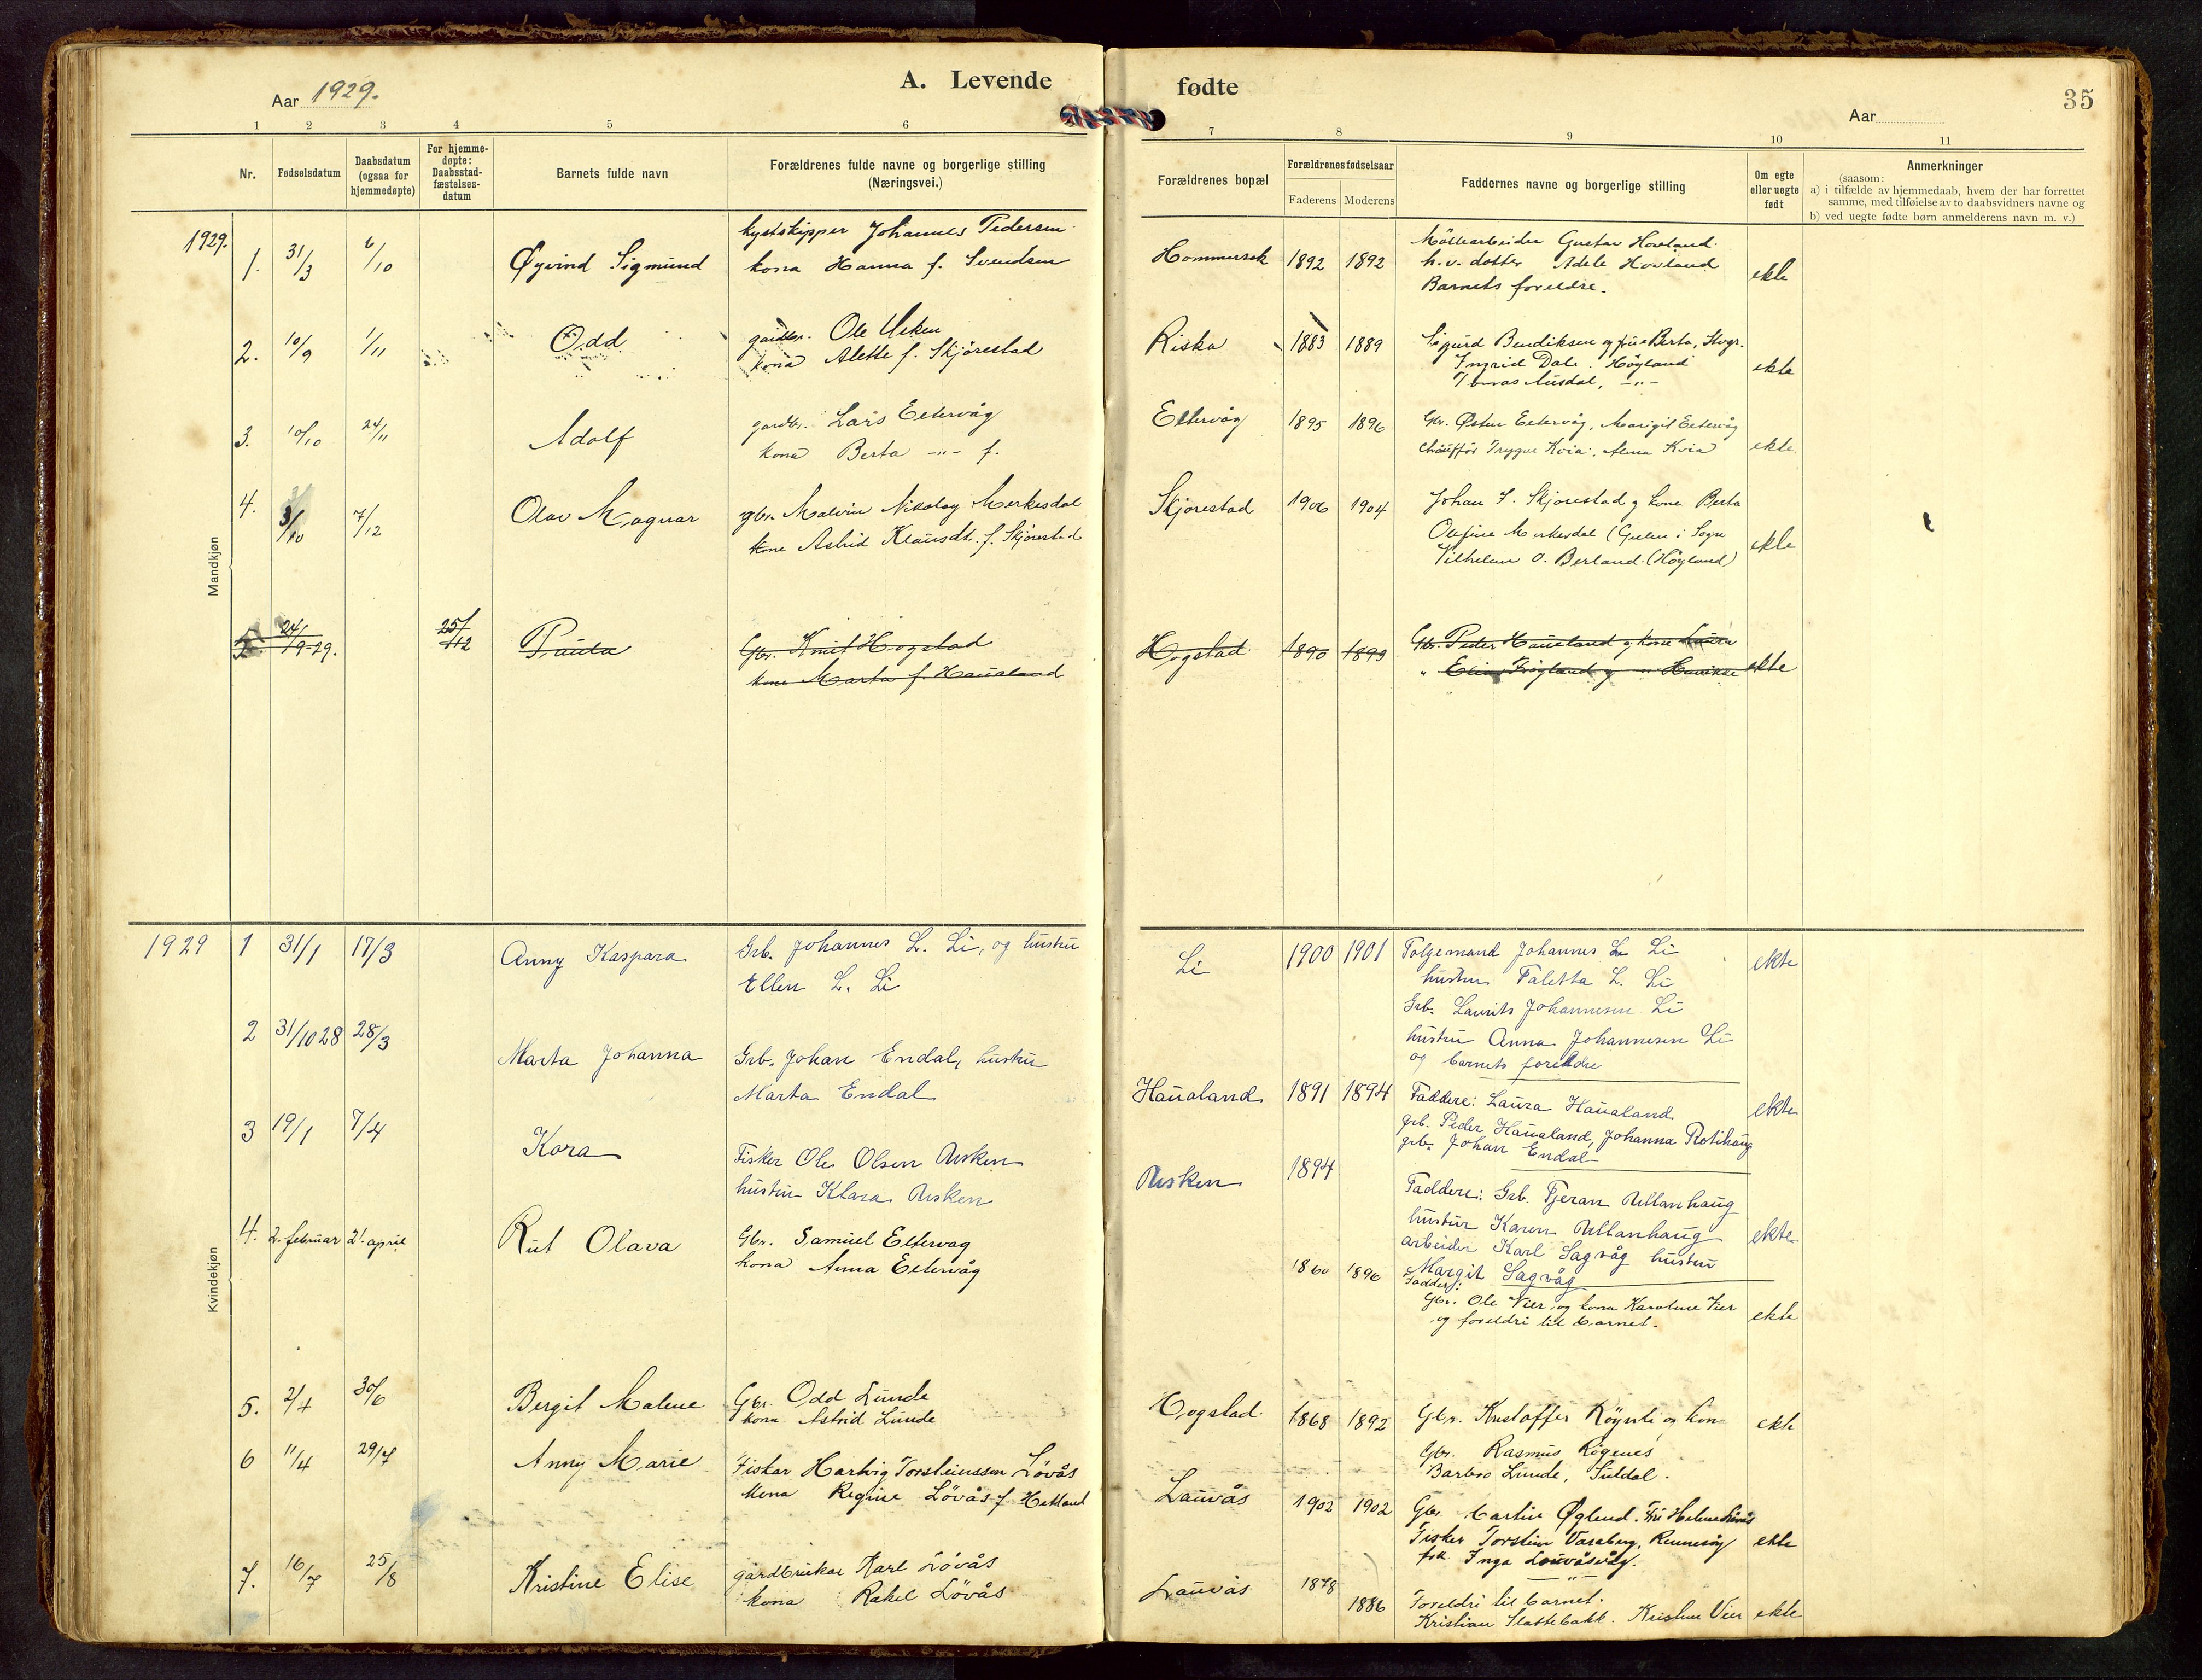 A. Levende
fødte
35
Aar 1929.
Aar
1 2 3 4 5 6
7 8 9 10 11
Nr.
Fødselsdatum
Daabsdatum
(ogsaa for
hjemmedøpte)
For hjemme-
døpte:
Daabsstad-
fæstelses-
datum
Barnets fulde navn
Forældrenes fulde navne og borgerlige stilling
(Næringsvei.)
Forældrenes bopæl
Forældrenes fødselsaar
Faderens Moderens
Faddernes navne og borgerlige stilling
Om egte
eller uegte
født
Anmerkninger
(saasom:
a) i tilfælde av hjemmedaab, hvem der har forrettet
samme, med tilføielse av to daabsvidners navne og
b) ved uegte fødte børn anmelderens navn m. v.)
Mandkjøn
1929.
1. 31/3 6/10 Øyvind Sigmund
kystskipper Johannes Pedersen
kona Hanna f. Svendsen
Hommersak 1892 1892
Gustav Hovland
h.v. dotter Adele Hovland
Barnets foreldre.
ekte
2. 10/9 1/11 Odd
gardbr. Ole Usken
kona Alette f. Skjörestad
Riska 1883 1889
Sigurd Bendiksen og frue Berta,
Ingrid Dale. Höyland
Ausdal, -"-
ekte
3. 10/10 24/11 Adolf
gardbr. Lars Eltervåg
kona Berta -"- f.
Eltervåg 1895 1896
Gbr. Östen Eltervåg, Margit Eltervåg
chaufför Trygve Kvia. Alma Kvia
ekte
4. 3/10 7/12 Olav Magnar
gbr. Malvin Nikolay Merkesdal
kone Astrid Klausdt. f. Skjørestad
Skjørestad 1906 1904
Johan I. Skjørestad og kone Berta
Olefine Merkesdal (Gulen i Sogn
Vilhelm O. Berland. (Høyland)
ekte
5. 24/9-29. 25/12 Paula
Gbr. Knut Hogstad
kone Marta f. Haualand
Hogstad 1890 1893
Gbr. Peder Haualand og kone Laura
ekte
Kvindekjøn
1929
1 31/1 17/3 Anny Kaspara
Grb. Johannes L. Li, og hustru
Ellen L. Li
Li 1900 1901
Følgemand Johannes L. Li
hustru Taletta L. Li
Grb. Laurits Johannesen Li
hustru Anna Johannesen Li
og barnets foreldre
ekte
2 31/10 28 28/3 Marta Johanna
Grb. Johan Endal, hustru
Marta Endal
Haualand 1891 1894
Faddere: Laura Haualand
grb. Peder Haualand, Johanna Rotihaug
grb. Johan Endal
ekte
3 19/1 7/4 Kora
Fisker Ole Olsen Usken
hustru Klara Usken
Usken 1894
Faddere: Grb. Tjeran Ullanhaug
hustru Karen Ullanhaug
arbeider Karl Sagvåg hustru
Margit Sagvåg
ekte
4. 2. februar 21. april Rut Olava
Gbr. Samuel Eltervag
kona Anna Eltervåg
1860 1896
Fadder:
Gbr. Ole Vier og kona Karoline Vier
og foreldri til barnet.
ekte
5. 2/4 30/6 Bergit Malene
Gbr. Odd Lunde
kona Astrid Lunde
Hogstad 1868 1892
Gbr. Kristoffer og kona
Gbr. Rasmus Rögenes
Barbro Lunde, Suldal.
ekte
6 11/4 29/7 Anny Marie
Fiskar Hartvig Torsteinssen Lövås
kona Regine Lövås f. Hetland
Lauvås 1902 1902
Gbr. Martin Øglend. Fru Helene Lövås
Fisker Torstein Vareberg, Rennesöy
frk. Inga Lauvåsvåg.
ekte
7. 16/7 25/8 Kristine Elise
gardbrukar Karl Lövås
kona Rakel Lövås
Lauvås 1878 1886
Foreldri til barnet.
Kristian Slattebakk. Kristine Vier
ekte